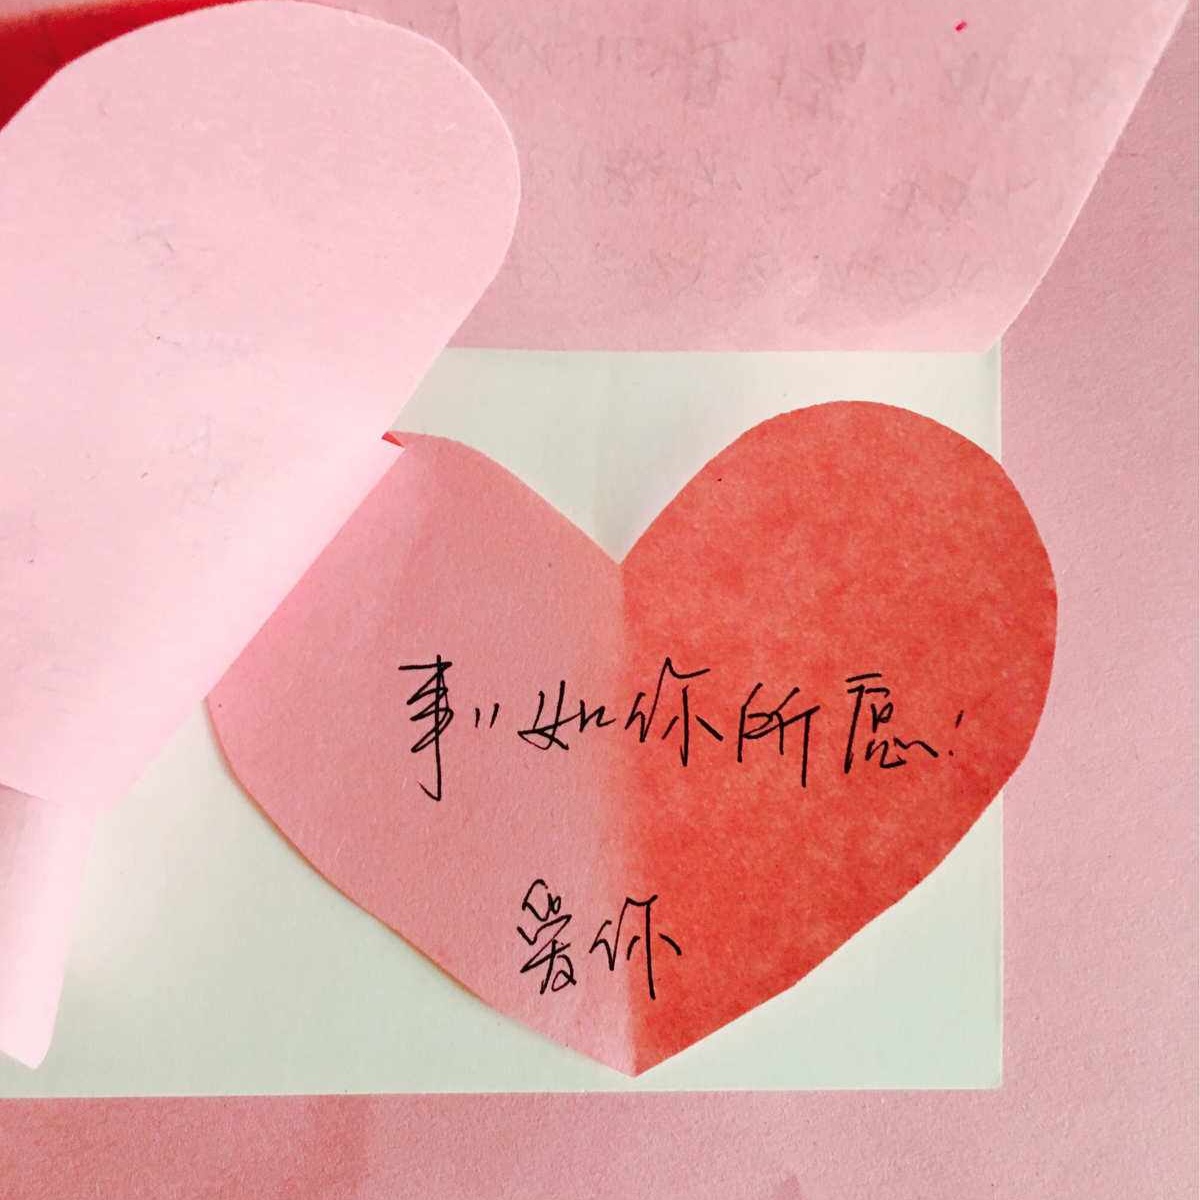 事〃如你所愿!
爱你